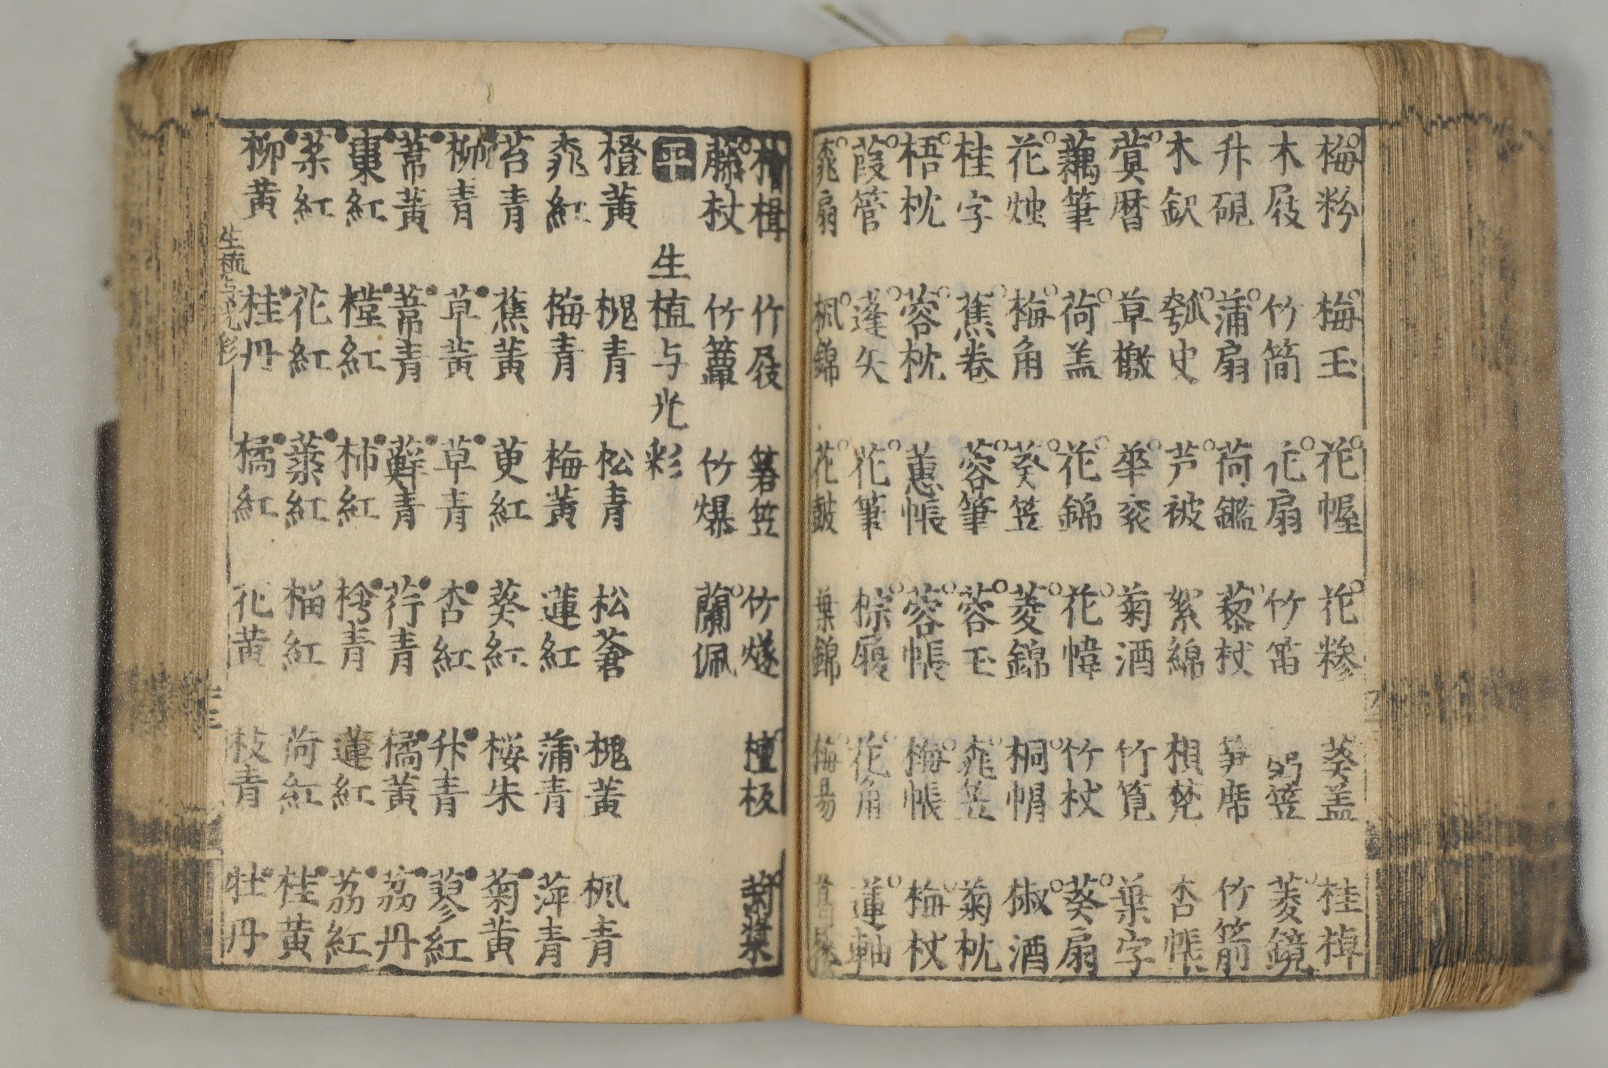 梅粉 梅玉 花幄 花糝 葵盖 桂棹
木屐 竹简 花扇 竹笛 箬笠 菱鏡
升硯 蒲扇 荷鑑 藜杖 笋席 竹箭
木欽 瓠史 芦被 絮綿 杏帳
蓂曆 草檄 華衮 菊酒 竹筧 葉字
藕筆 荷盖 花錦 花幃 竹杖 葵扇
花烛 梅角 葵笠 菱錦 桐帽 椒酒
桂字 蕉卷 蓉筆 蓉玉 菊枕
梧枕 蓉枕 蕙帳 蓉帳 梅帳 梅杖
葭管 蓬矢 花筆 棕履 花角 蓮軸
桃扇 楓錦 花鼓 葉錦
竹屐 箬笠 竹燧 檀板 菊漿
藤杖 竹籥 竹爆 蘭佩
平 生植与光彩
橙黃 槐青 松青 松蒼 槐黃 楓青
桃紅 梅青 梅黃 蓮紅 蒲青 萍青
苔青 蕉黃 葵紅 桜朱 菊黃
柳青 草黃 草青 杏紅 升青 蓼紅
蒂黃 蒂青 蘚青 荇青 橘黃 荔丹
棗紅 樘紅 柿紅 蓮紅 荔紅
花紅 蕖紅 榴紅 荷紅 桂黃
柳黃 桂丹 橘紅 花黃 枝青 牡丹